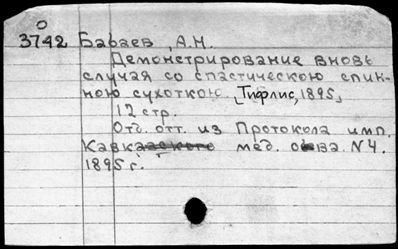 0
3742 Бабаев, А.Н.
Демонстрирование вновь
случая со спастическою спин-
ною сухоткою. [Тифлис, 1895]
12 стр.
Отд. отт. из Протокола имп.
Кавказского мед. о-ва N4.
1895 г.